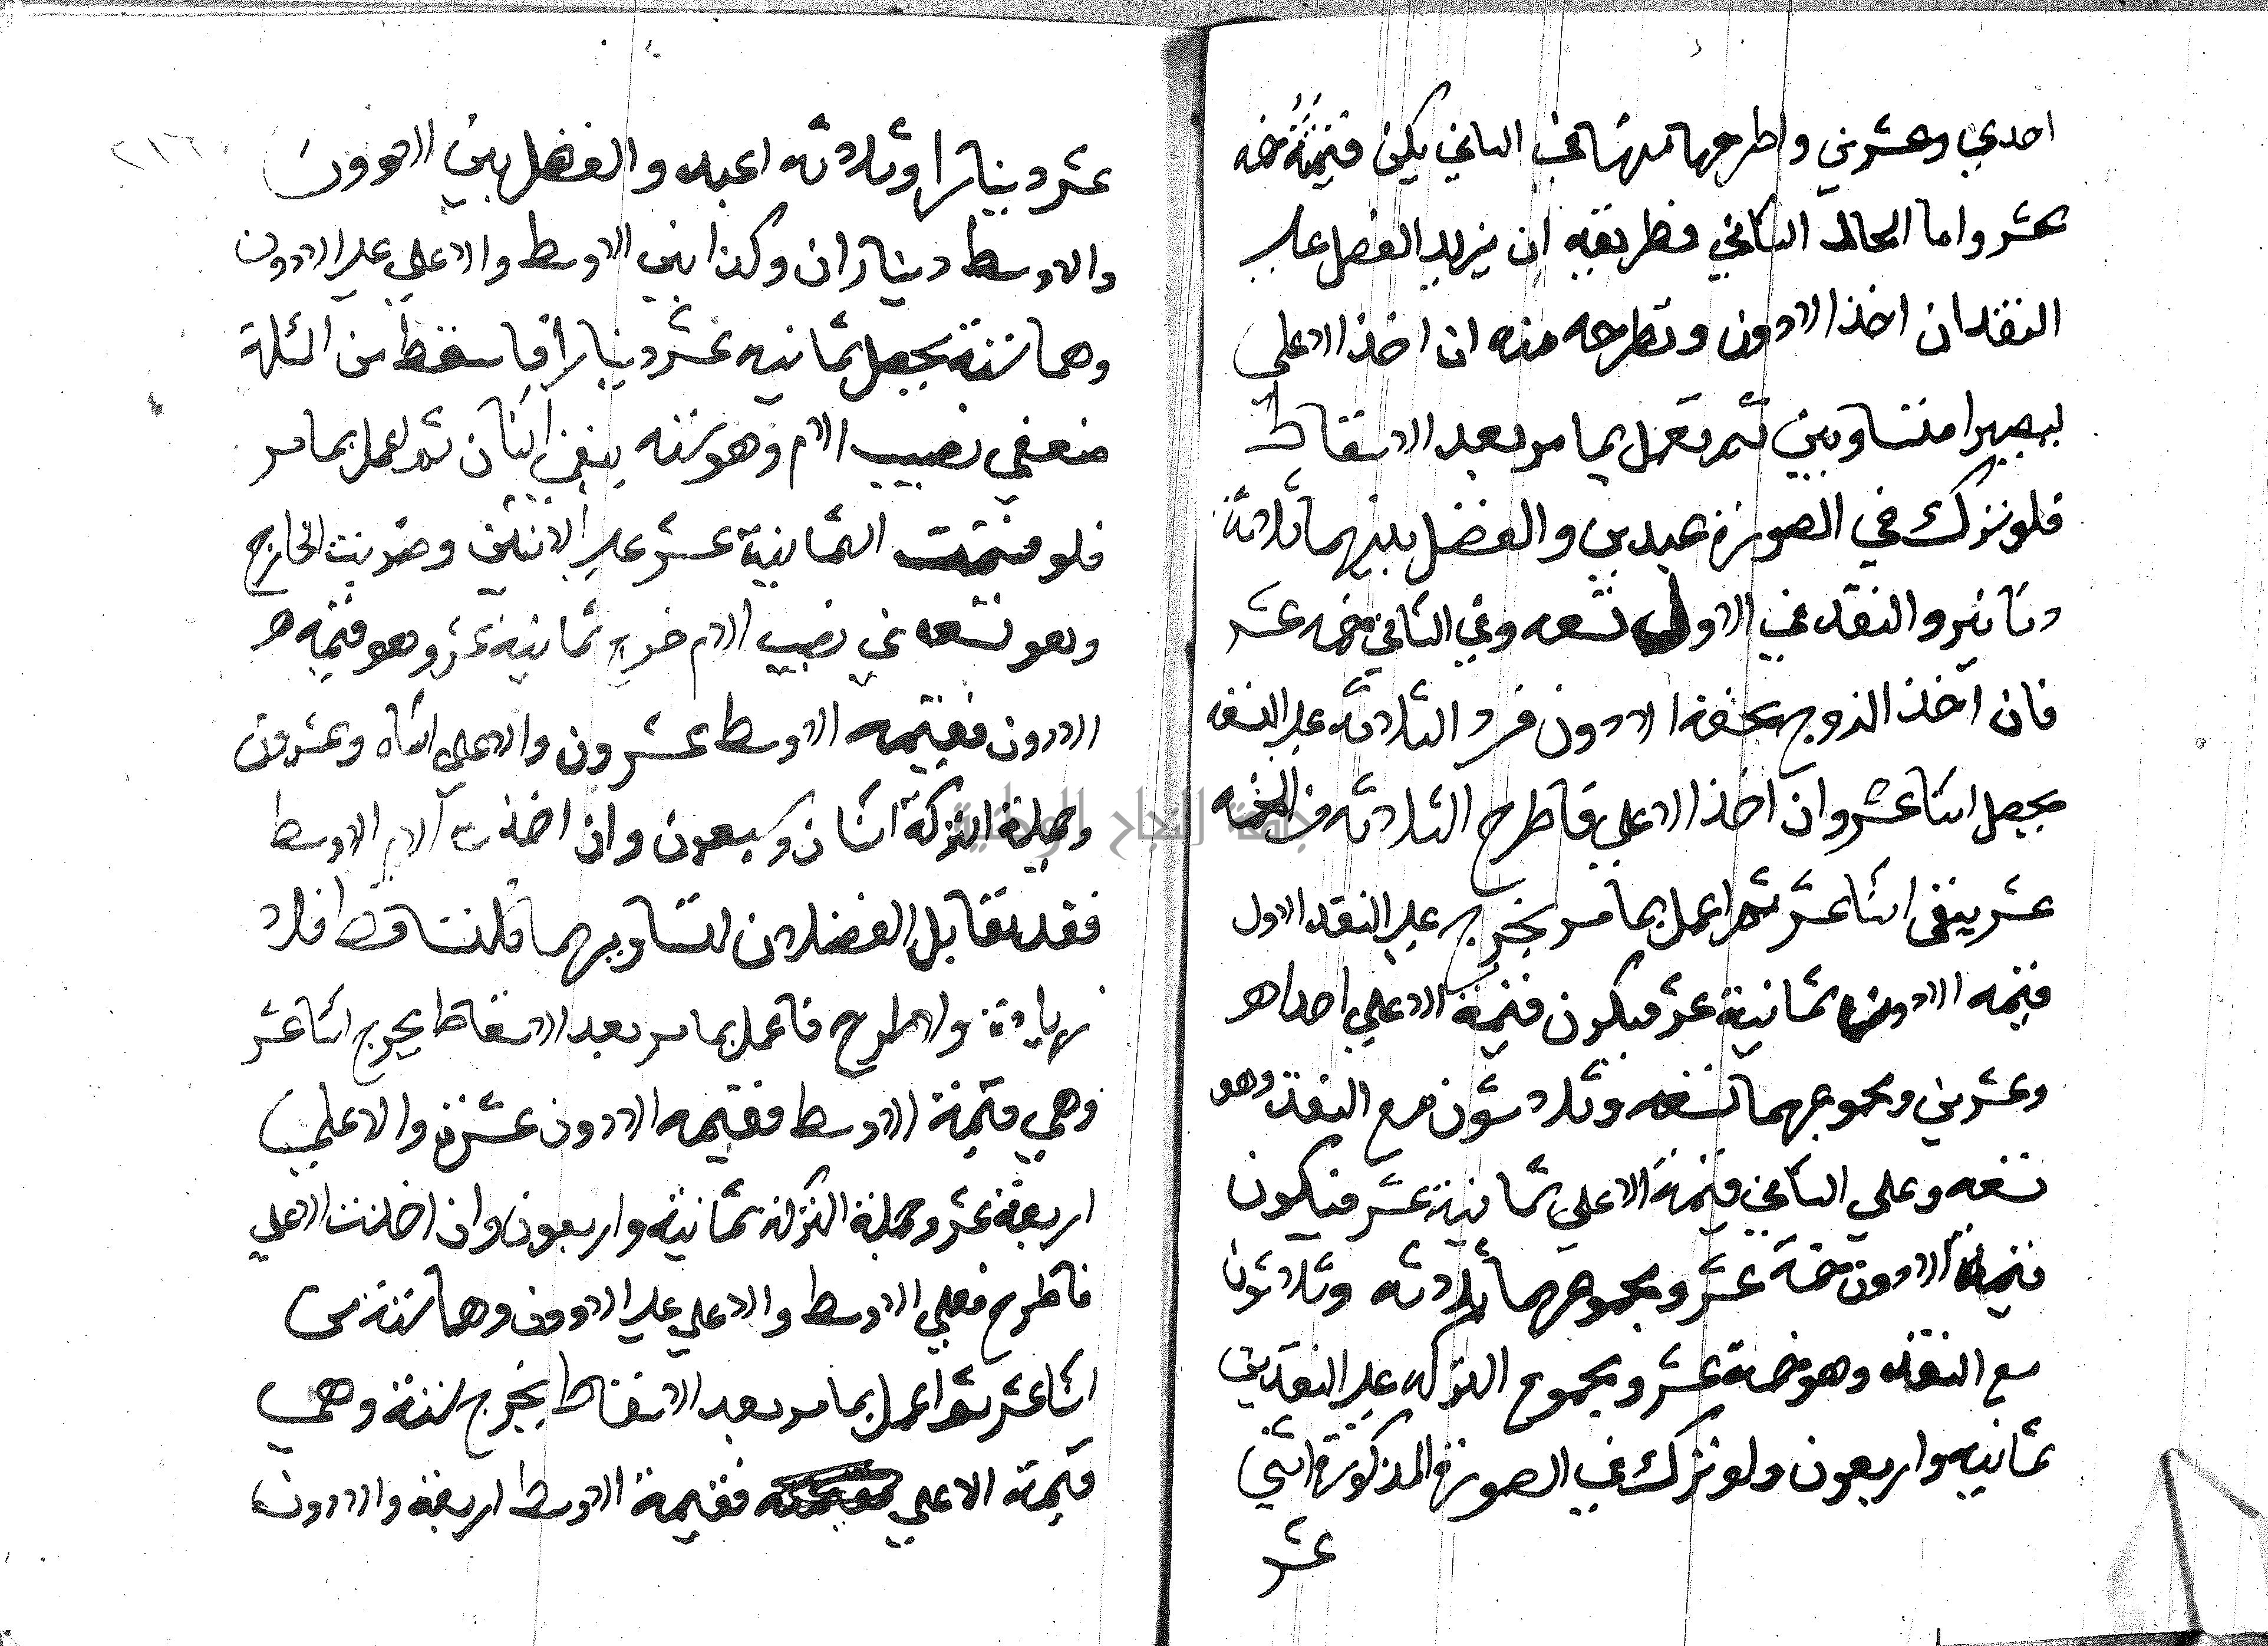 احدي وعشرين واطرحها منها في الثاني يكن قيمته خمسه
عشر واما الحال الثاني فطريقه ان يزيد الفضل علي
النقد ان اخذ الادون وتطرحه منه ان اخذ الاعلي
ليصيرا متساويين ثم تعمل بما مر بعد الاسقاط
فلو ترك في الصورة عبدين والفضل بينهما ثلاثة
دنانير والنقد في الاول تسعه وفي الثاني خمسه عشر
فان اخذ الزوج بحقه الادون فزد الثلاثه علي التسعه
يحصل اثنا عشر وان اخذ الاعلي فاطرح الثلاثه من الخمسه
عشر يبقى اثنا عشر ثم اعمل بما مر يخرج علي النقد الاول
قيمه الادون ثمانية عشر فيكون قيمة الاعلي احدا
وعشرين ومجموعهما تسعه وثلاثون مع النقد وهو
تسعه وعلي الثاني قيمة الاعلي ثمانية عشر فيكون
قيمة الادون خمسة عشر ومجموعهما ثلاثه وثلاثون
مع النقد وهو خمسة عشر ومجموع التركه علي النقدين
ثمانيه واربعون ولو ترك في الصورة المذكورة اثني
عشر
٢١٦
عشر دينارا وثلاثه اعبد والفضل بين الادون
والاوسط ديناران وكذا بين الاوسط والاعلي علي الادون
وهما ستة يحصل ثمانيه عشر دينارا فاسقط من الستة
ضعفي نصيب الام وهو ستة يبقى اثنان ثم اعمل بما مر
فلو قسمت الثمانية عشر علي الاثنين وضربت الخارج
وهو تسعه في نصيب الام خرج ثمانية عشر وهو قيمه
الادون فقيمه الاوسط عشرون والاعلي اثنان وعشرون
وجملة التركة اثنان وسبعون وان اخذت الام الاوسط
فقد تقابل الفضلان لتساويهما فلتساقطا فلا
زيادة ولا طرح فاعمل بما مر بعد الاسقاط يخرج اثنا عشر
وهي قيمة الاوسط فقيمه الادون عشرة والاعلي
اربعة عشر وجملة التركة ثمانية واربعون وان اخذت الاعلي
فاطرح فضلي الاوسط والاعلي علي الادون وهما ستة من
اثنا عشر ثم اعمل بما مر بعد الاسقاط يخرج ستة وهي
قيمة الاعلي فقيمة الاوسط اربعة والادون
جامعة النجاح الوطنية